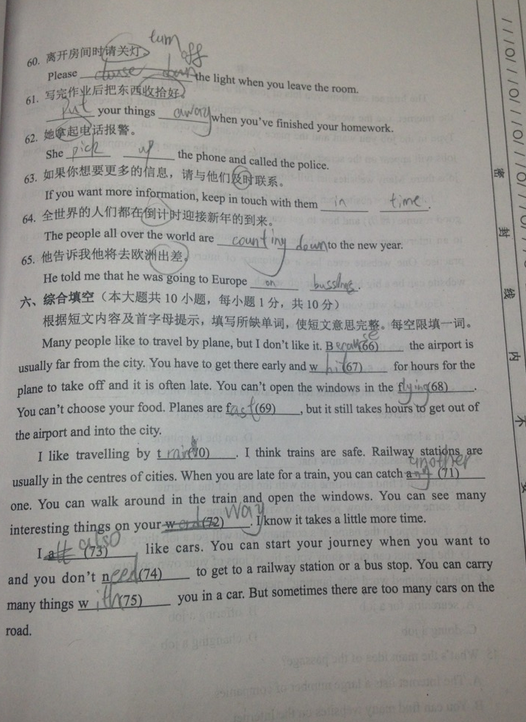 turn off
60. 离开房间时请关灯。
Please close down the light when you leave the room.
61. 写完作业后把东西收拾好。
put your things away when you've finished your homework.
62. 她拿起电话报警。
She pick up the phone and called the police.
63. 如果你想要更多的信息，请与他们及时联系。
If you want more information, keep in touch with them in time.
64. 全世界的人们都在倒计时迎接新年的到来。
The people all over the world are counting down to the new year.
65. 他告诉我他将去欧洲出差。
He told me that he was going to Europe on bussdnge.
六、综合填空（本大题共 10 小题，每小题 1 分，共 10 分）
根据短文内容及首字母提示，填写所缺单词，使短文意思完整。每空限填一词。
Many people like to travel by plane, but I don't like it. B (66) the airport is
usually far from the city. You have to get there early and w (67) for hours for the
plane to take off and it is often late. You can't open the windows in the flying(68).
You can't choose your food. Planes are fast(69), but it still takes hours to get out of
the airport and into the city.
I like travelling by train(70). I think trains are safe. Railway stations are
another
usually in the centres of cities. When you are late for a train, you can catch a (71)
one. You can walk around in the train and open the windows. You can see many
way
interesting things on your w (72). I know it takes a little more time.
also
I a (73) like cars. You can start your journey when you want to
and you don't need(74) to get to a railway station or a bus stop. You can carry
many things with(75) you in a car. But sometimes there are too many cars on the
road.
密
封
线
内
不